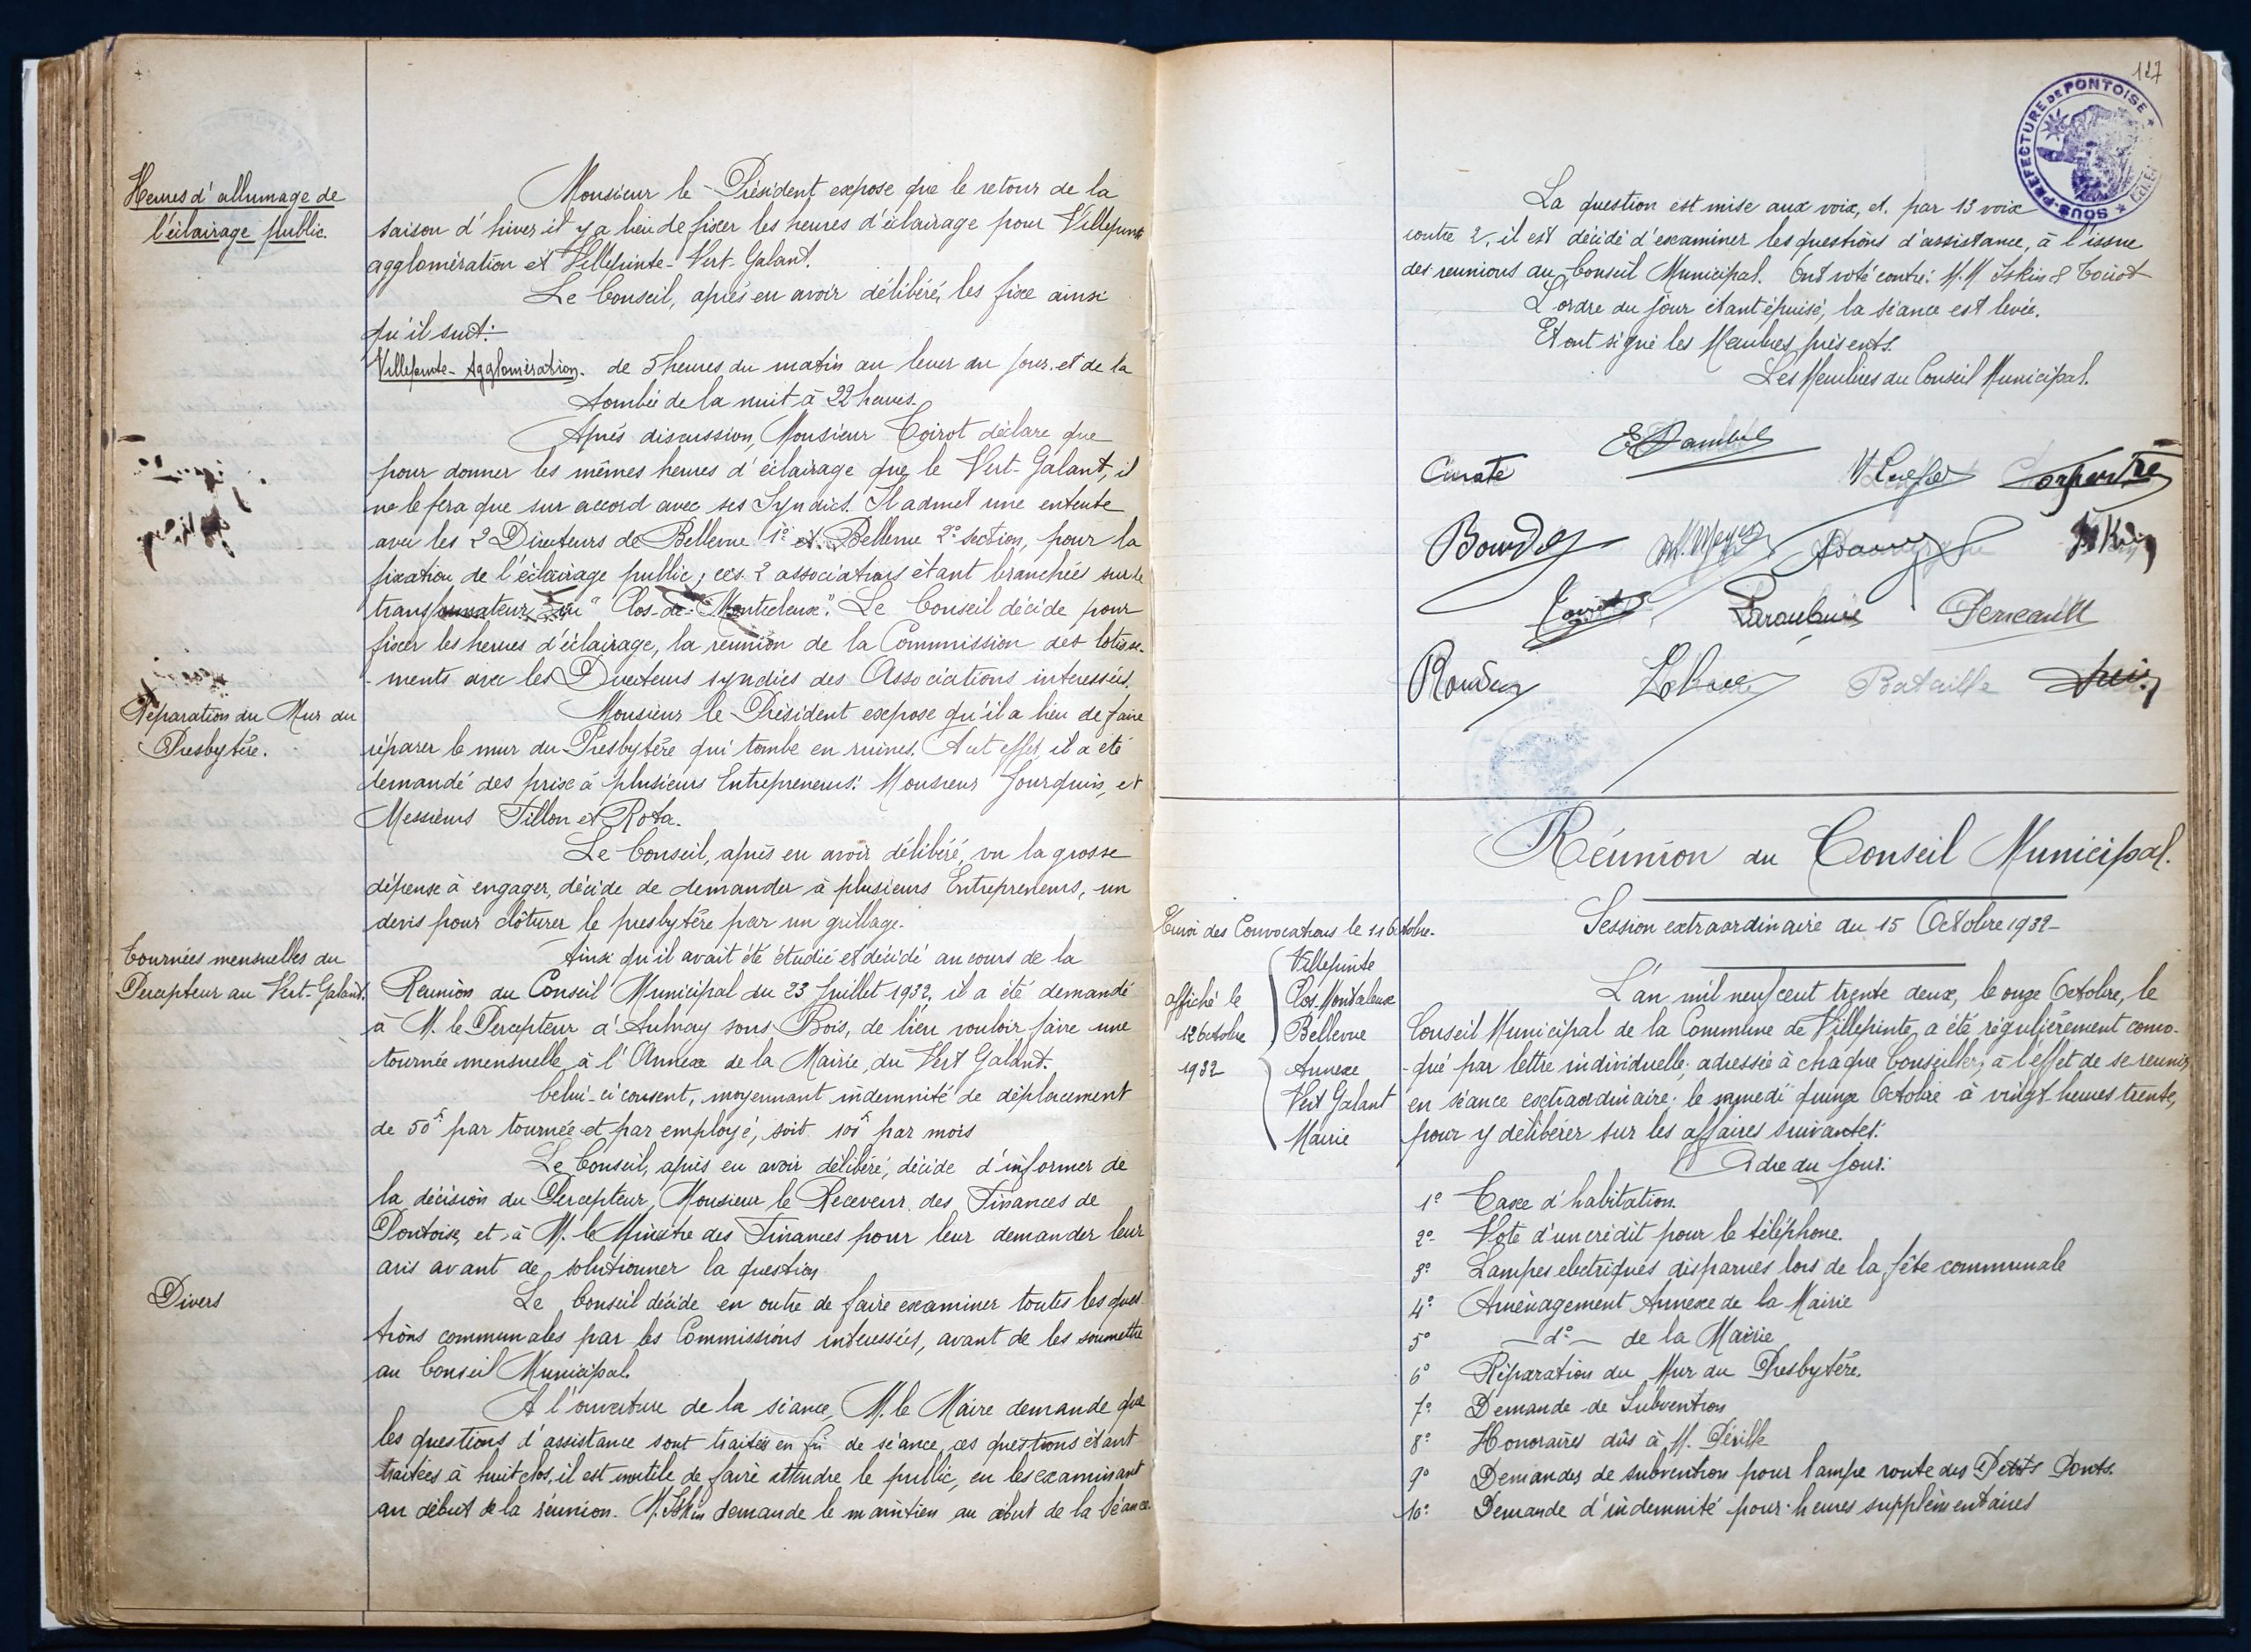 Heures d'allumage de
l'éclairage public.
Monsieur le Président expose que le retour de la
saison d'hiver il y a lieu de fixer les heures d'éclairage pour Villepinte
agglomération et Villepinte-Vert-Galant.
Le Conseil, après en avoir délibéré, les fixe ainsi
qu'il suit:
Villepinte-Agglomération. de 5 heures du matin au lever du jour et de la
tombée de la nuit à 22 heures.
Après discussion, Monsieur Toirot déclare que
pour donner les mêmes heures d'éclairage que le Vert-Galant, il
ne le fera que sur accord avec ses Syndics. Il admet une entente
avec les 2 Directeurs de Bellevue 1e et Bellevue 2e section, pour la
fixation de l'éclairage public, ces 2 associations étant branchées sur le
transformateur du "Clos-de-Montceleux". Le Conseil décide pour
fixer les heures d'éclairage, la réunion de la Commission des lotisse-
-ments avec les Directeurs syndics des Associations interessées.
Réparation du Mur du
Presbytère.
Monsieur le Président expose qu'il a lieu de faire
réparer le mur du Presbytère qui tombe en ruines. A cet effet, il a été
demandé des prix à plusieurs Entrepreneurs: Monsieur Jourquin, et
Messieurs Tillon et Rota.
Le Conseil, après en avoir délibéré, vu la grosse
dépense à engager, décide de demander à plusieurs Entrepreneurs, un
devis pour clôturer le presbytère par un grillage.
Tournées mensuelles du
Percepteur au Vert-Galant.
Ainsi qu'il avait été étudié et décidé au cours de la
Reunion du Conseil Municipal du 23 Juillet 1932, il a été demandé
à M. le Percepteur d'Aulnay sous Bois, de bien vouloir faire une
tournée mensuelle à l'Annexe de la Mairie, du Vert Galant.
Celui-ci consent, moyennant indemnité de déplacement
de 50f par tournée et par employé, soit 100f par mois
Le Conseil, après en avoir délibéré, décide d'informer de
la décision du Percepteur, Monsieur le Receveur des Finances de
Pontoise, et à M. le Ministre des Finances pour leur demander leur
avis avant de solutionner la question
Divers
Le Conseil décide en outre de faire examiner toutes les ques-
tions communales par les Commissions intéressées, avant de les soumettre
au Conseil Municipal.
A l'ouverture de la séance, M. le Maire demande que
les questions d'assistance sont traitées en fin de séance, ces questions étant
traitées à huit clos, il est inutile de faire attendre le public, en les examinant
au début de la réunion. M. Iskin demande le maintien au début de la séance
127
SOUS-PREFECTURE DE PONTOISE
La question est mise aux voix, et par 13 voix
contre 2, il est décidé d'examiner les questions d'assistance, à l'issue
des reunions du Conseil Municipal. Ont voté contre: M.M Iskin & Toirot
L'ordre du jour étant épuisé, la séance est levée.
Et ont signé les Membres présents.
Les Membres du Conseil Municipal.
Curate
Perneault
Bataille
Réunion du Conseil Municipal.
Session extraordinaire du 15 Octobre 1932-
Envoi des Convocations le 11 Octobre.
affiché le
12 Octobre
1932
Villepinte
Clos-Montceleux
Bellevue
Annexe
Vert Galant
Mairie
L'an mil neuf cent trente deux, le onze Octobre, le
Conseil Municipal de la Commune de Villepinte, a été régulièrement convo-
-qué par lettre individuelle, adressée à chaque Conseiller, à l'effet de se reunir
en séance extraordinaire: le samedi quinze Octobre à vingt-heures trente,
pour y délibérer sur les affaires suivantes:
Ordre du jour:
1° Taxe d'habitation.
2° Vote d'un crédit pour le téléphone.
3° Lampes electriques disparues lors de la fête communale
4° Aménagement Annexe de la Mairie
5° - d° - de la Mairie
6° Réparation du Mur du Presbytère.
7° Demande de Subvention
8° Honoraires dûs à M.
9° Demandes de subvention pour lampe route des Petits Ponts.
10° Demande d'indemnité pour heures supplémentaires